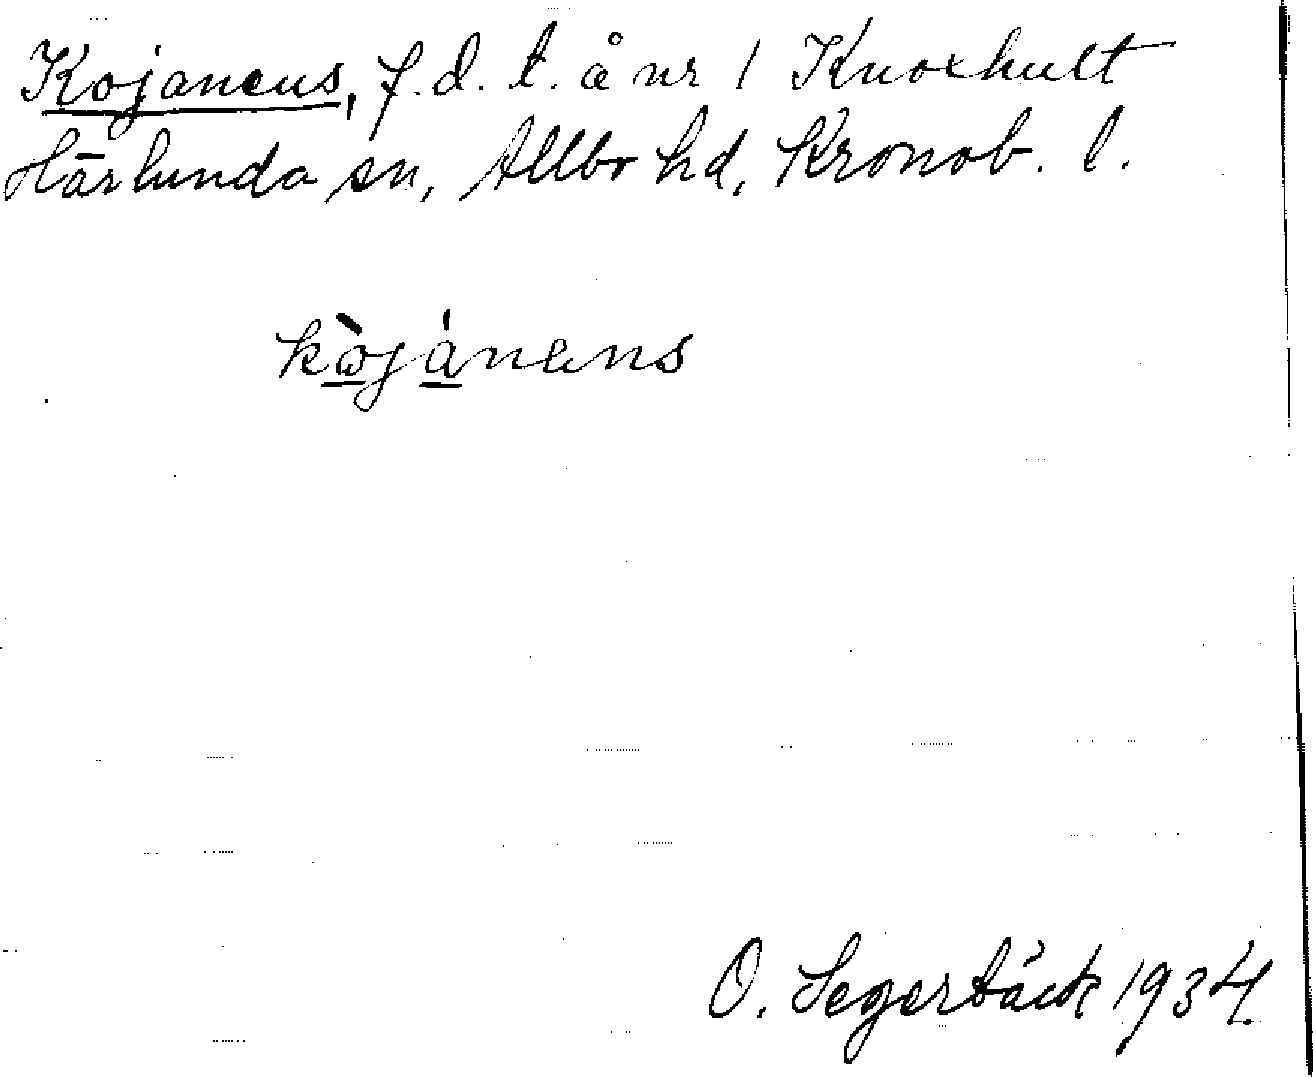 Kojanens, f.d. t. å nr 1 Knoxhult
Härlunda sn, Allbo hd, Kronob. l.
kòjánens
O. Segerbäck 1934.